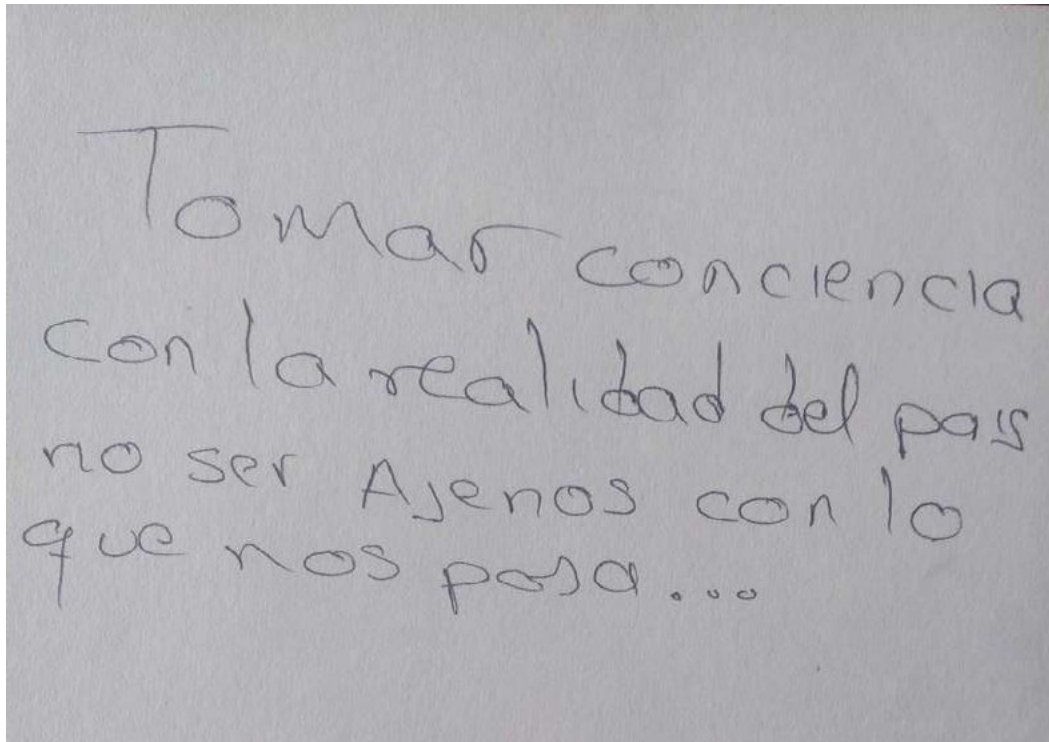 Tomar conciencia
con la realidad del pais
no ser Ajenos con lo
que nos pasa...